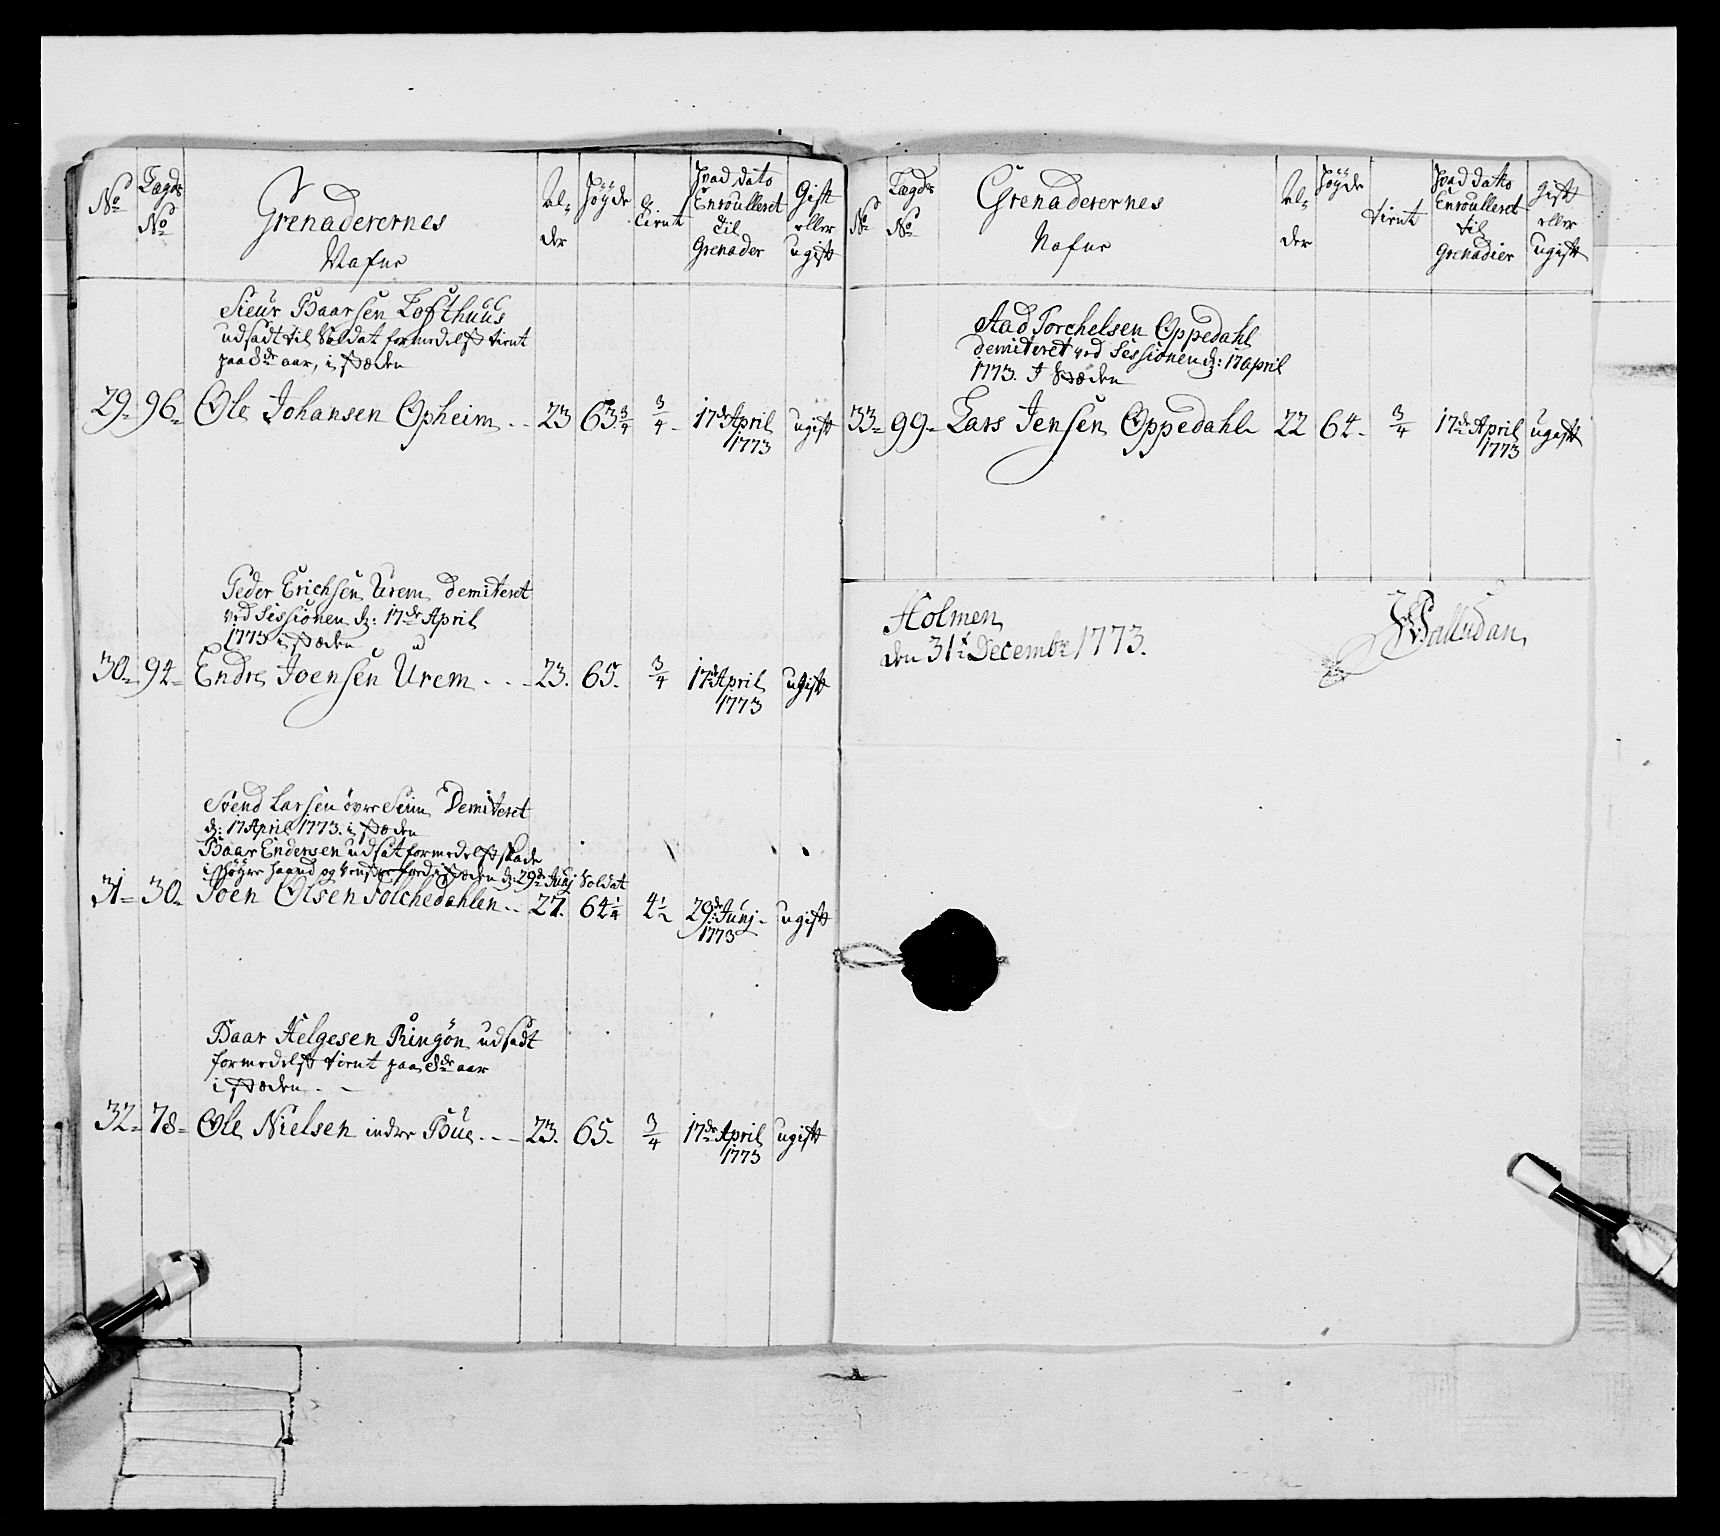 No
Lægds
No
Grenaderernes
Nafne
Al-
der
Høyde
Tient
Hvad dato
Enroulleret
til
Grenader
Gift
eller
ugift
Sieur Baarsen Lofthuus
udsadt til Soldat formedelst tient
paa 8de aar, i stæden
29 96 Ole Johansen Opheim 23 63 3/4 3/4 17de April ugift
1773
Peder Erichsen Urem Demiteret
ved Sessionen d: 17de April
1773 i stæden
30 94 Endre Joensen Urem 23. 65. 3/4 17de April ugift
1773
Svend Larsen övre Seim Demiteret
d: 17 April 1773. i stæden
Baar Endersen udsat formedelst skade
i höyre haand og i stæden d: 29de Junj Soldat
31 30 Joen Olsen Folchedahlen 27. 64 1/4 4 1/2 29de Junj ugift
1773
Baar Helgesen Ringön udsadt
formedelst tient paa 8de aar
i stæden
32 78 Ole Nielsen indre Büe 23. 65. 3/4 17de April ugift
1773
No
Lægds
No
Grenaderernes
Nafne
Al-
der
Høyde
tient
Hvad datto
Enroulleret
til
Grenadier
Gift
eller
ugift
Aad Torchelsen Oppedahl
demiteret ved Sessionen d: 17 April
1773. I stæden
33 99 Lars Jensen Oppedahl 22 64 3/4 17de April ugift
1773
Holmen
den 31te Decembr 1773.